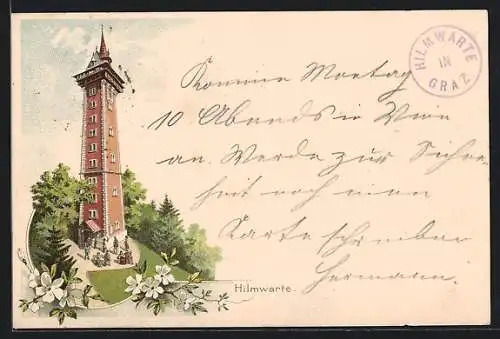 HILMWARTE
IN
GRAZ
Komme Montag
10 Abends in Wien
an. Werde zur Sicher-
heit noch eine
Karte schreiben
Hermann.
Hilmwarte.